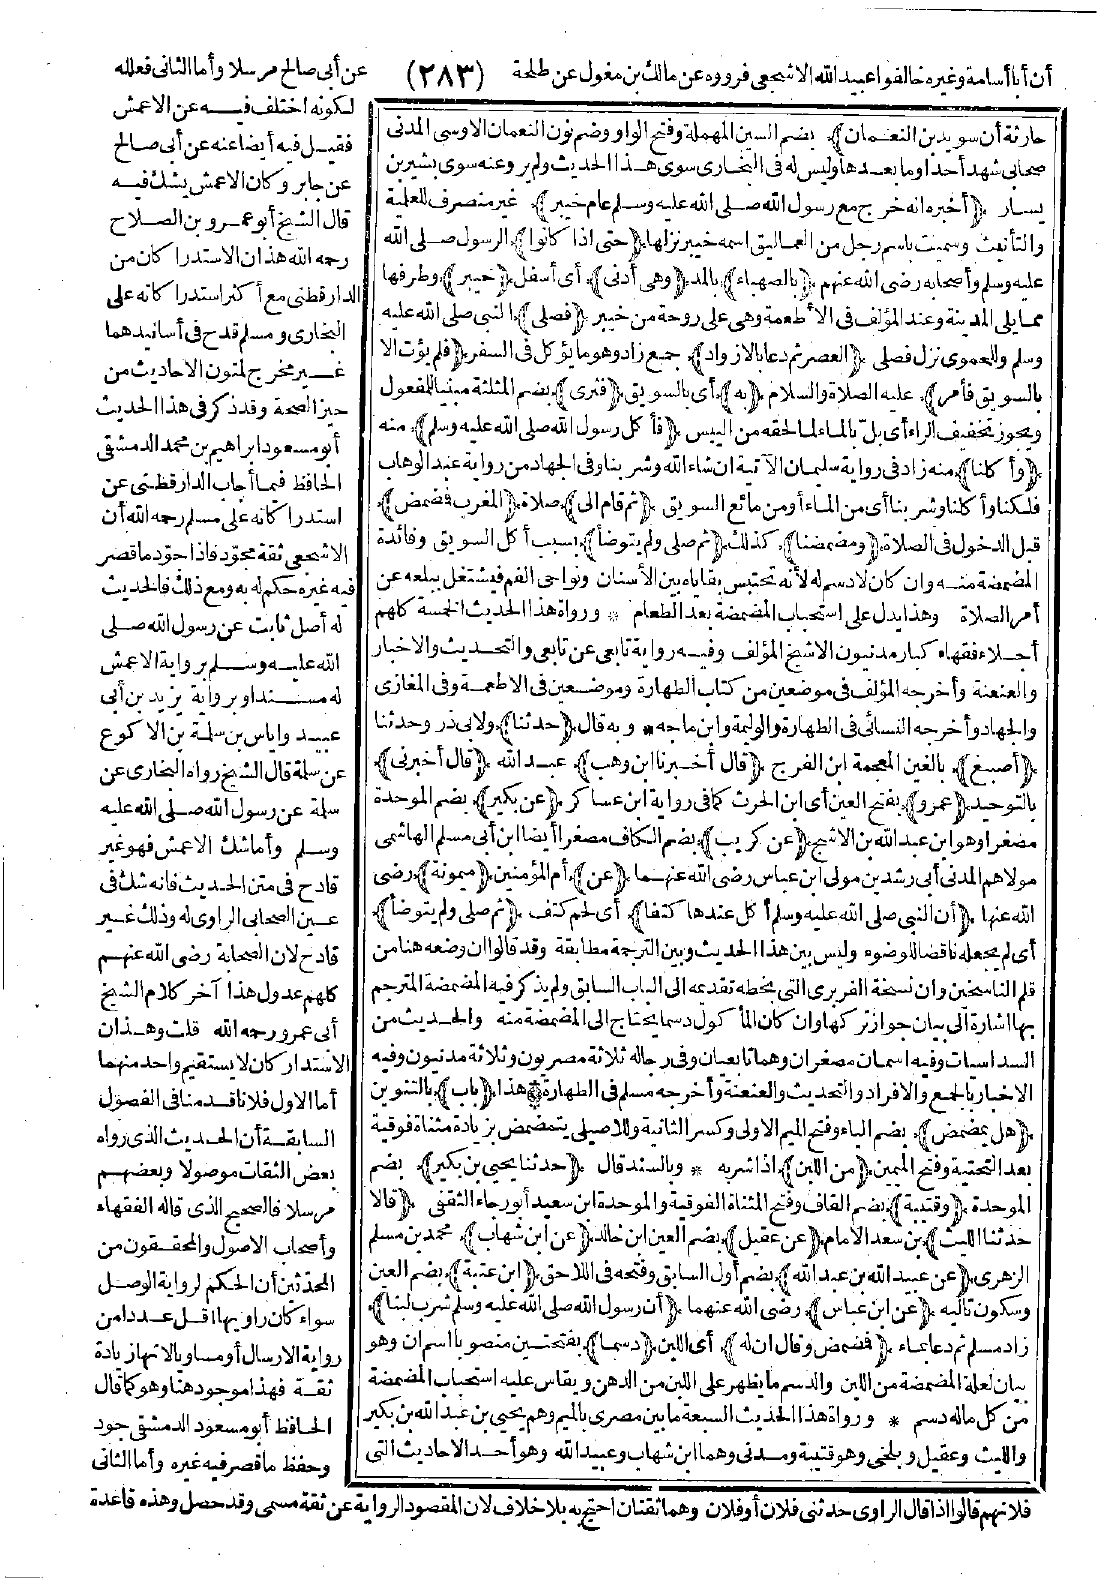 أن أبا أسامة وغيره خالفوا عبيد الله الاشجعى فرووه عن مالك بن مغول عن طلحة (٢٨٣) عن أبى صالح مرسلا وأما الثانى فعلله
حارثة أن سويد بن النعمان﴾ بضم السين المهملة وفتح الواو وضم نون النعمان الاوسى المدنى
صحابى شهد أحدا وما بعدها وليس له فى البخارى سوى هذا الحديث ولم يرو عنه سوى بشير بن
يسار ﴿أخبره انه خرج مع رسول الله صلى الله عليه وسلم عام خيبر﴾ غير منصرف للعلمية
والتأنيث وسميت باسم رجل من العماليق اسمه خيبر نزلها ﴿حتى اذا كانوا﴾ الرسول صلى الله
عليه وسلم وأصحابه رضى الله عنهم ﴿بالصهباء﴾ بالمد ﴿وهى أدنى﴾ أى أسفل ﴿خيبر﴾ وطرفها
مما يلى المدينة وعند المؤلف فى الأطعمة وهى على روحة من خيبر ﴿فصلى﴾ النبى صلى الله عليه
وسلم وللحموى نزل فصلى ﴿العصر ثم دعا بالازواد﴾ جمع زاد وهو ما يؤكل فى السفر ﴿فلم يؤت الا
بالسويق فأمر﴾ عليه الصلاة والسلام ﴿به﴾ أى بالسويق ﴿فثرى﴾ بضم المثلثة مبنيا للمفعول
ويجوز تخفيف الراء أى بلّ بالماء لما لحقه من اليبس ﴿فأكل رسول الله صلى الله عليه وسلم﴾ منه
﴿وأكلنا﴾ منه زاد فى رواية سليمان الآتية ان شاء الله وشربنا وفى الجهاد من رواية عبد الوهاب
فلكنا وأكلنا وشربنا أى من الماء أو من مائع السويق ﴿ثم قام الى﴾ صلاة ﴿المغرب فمضمض﴾
قبل الدخول فى الصلاة ﴿ومضمضنا﴾ كذلك ﴿ثم صلى ولم يتوضأ﴾ بسبب أكل السويق وفائدة
المضمضة منه وان كان لا دسم له لأنه تحتبس بقاياه بين الأسنان ونواحى الفم فيشتغل ببلعه عن
أمر الصلاة وهذا يدل على استحباب المضمضة بعد الطعام * ورواة هذا الحديث الخمسة كلهم
أجلاء فقهاء كبار مدنيون الا شيخ المؤلف وفيه رواية تابعى عن تابعى والتحديث والاخبار
والعنعنة وأخرجه المؤلف فى موضعين من كتاب الطهارة وموضعين فى الاطعمة وفى المغازى
والجهاد وأخرجه النسائى فى الطهارة والوليمة وابن ماجه * وبه قال ﴿حدثنا﴾ ولابى ذر وحدثنا
﴿أصبغ﴾ بالغين المعجمة ابن الفرج ﴿قال أخبرنا ابن وهب﴾ عبد الله ﴿قال أخبرنى﴾
بالتوحيد ﴿عمرو﴾ بفتح العين أى ابن الحرث كما فى رواية ابن عساكر ﴿عن بكير﴾ بضم الموحدة
مصغرا وهو ابن عبد الله بن الاشج ﴿عن كريب﴾ بضم الكاف مصغرا أيضا ابن أبى مسلم الهاشمى
مولاهم المدنى أبى رشدين مولى ابن عباس رضى الله عنهما ﴿عن﴾ أم المؤمنين ﴿ميمونة﴾ رضى
الله عنها ﴿أن النبى صلى الله عليه وسلم أكل عندها كتفا﴾ أى لحم كتف ﴿ثم صلى ولم يتوضأ﴾
أى لم يجعله ناقضا للوضوء وليس بين هذا الحديث وبين الترجمة مطابقة وقد قالوا ان وضعه هنا من
قلم الناسخين وان نسخة الفربرى التى بخطه تقديمه الى الباب السابق ولم يذكر فيه المضمضة المترجم
بها اشارة الى بيان جواز تركها وان كان المأكول دسما يحتاج الى المضمضة منه والحديث من
السداسيات وفيه اسمان مصغران وهما تابعيان وفى رجاله ثلاثة مصريون وثلاثة مدنيون وفيه
الاخبار بالجمع والافراد والتحديث والعنعنة وأخرجه مسلم فى الطهارة * هذا ﴿باب﴾ بالتنوين
﴿هل يمضمض﴾ بضم الياء وفتح الميم الاولى وكسر الثانية وللاصيلى يتمضمض بزيادة مثناة فوقية
بعد التحتية وفتح الميمين ﴿من اللبن﴾ اذا شربه * وبالسند قال ﴿حدثنا يحيى بن بكير﴾ بضم
الموحدة ﴿وقتيبة﴾ بضم القاف وفتح المثناة الفوقية والموحدة ابن سعيد أبو رجاء الثقفى ﴿قالا
حدثنا الليث﴾ بن سعد الامام ﴿عن عقيل﴾ بضم العين ابن خالد ﴿عن ابن شهاب﴾ محمد بن مسلم
الزهرى ﴿عن عبيد الله بن عبد الله﴾ بضم أول السابق وفتحه فى اللاحق ﴿ابن عتبة﴾ بضم العين
وسكون تاليه ﴿عن ابن عباس﴾ رضى الله عنهما ﴿أن رسول الله صلى الله عليه وسلم شرب لبنا﴾
زاد مسلم ثم دعا بماء ﴿فمضمض وقال ان له﴾ أى اللبن ﴿دسما﴾ بفتحتين منصوبا اسم ان وهو
بيان لعلة المضمضة من اللبن والدسم ما يظهر على اللبن من الدهن ويقاس عليه استحباب المضمضة
من كل ماله دسم * ورواة هذا الحديث السبعة ما بين مصرى بالميم وهم يحيى بن عبد الله بن بكير
والليث وعقيل وبلخى وهو قتيبة ومدنى وهما ابن شهاب وعبيد الله وهو أحد الاحاديث التى
لكونه اختلف فيه عن الاعمش
فقيل فيه أيضا عنه عن أبى صالح
عن جابر وكان الاعمش يشك فيه
قال الشيخ أبو عمرو بن الصلاح
رحمه الله هذان الاستدراكان من
الدارقطنى مع أكثر استدراكاته على
البخارى ومسلم قدح فى أسانيدهما
غير مخرج لمتون الاحاديث من
حيز الصحة وقد ذكر فى هذا الحديث
أبو مسعود ابراهيم بن محمد الدمشقى
الحافظ فيما أجاب الدارقطنى عن
استدراكاته على مسلم رحمه الله أن
الاشجعى ثقة مجوّد فاذا جوّد ما قصر
فيه غيره حكم له به ومع ذلك فالحديث
له أصل ثابت عن رسول الله صلى
الله عليه وسلم برواية الاعمش
له مسندا وبرواية يزيد بن أبى
عبيد واياس بن سلمة بن الاكوع
عن سلمة قال الشيخ رواه البخارى عن
سلمة عن رسول الله صلى الله عليه
وسلم وأما شك الاعمش فهو غير
قادح فى متن الحديث فانه شك فى
عين الصحابى الراوى له وذلك غير
قادح لان الصحابة رضى الله عنهم
كلهم عدول هذا آخر كلام الشيخ
أبى عمرو رحمه الله قلت وهذان
الاستدراكان لا يستقيم واحد منهما
أما الاول فلانا قدمنا فى الفصول
السابقة أن الحديث الذى رواه
بعض الثقات موصولا وبعضهم
مرسلا فالصحيح الذى قاله الفقهاء
وأصحاب الاصول والمحققون من
المحدثين أن الحكم لرواية الوصل
سواء كان راويها أقل عددا من
رواية الارسال أو مساويا لانها زيادة
ثقة فهذا موجود هنا وهو كما قال
الحافظ أبو مسعود الدمشقى جود
وحفظ ما قصر فيه غيره وأما الثانى
فلانهم قالوا اذا قال الراوى حدثنى فلان أو فلان وهما ثقتان احتج به بلا خلاف لان المقصود الرواية عن ثقة مسمى وقد حصل وهذه قاعدة